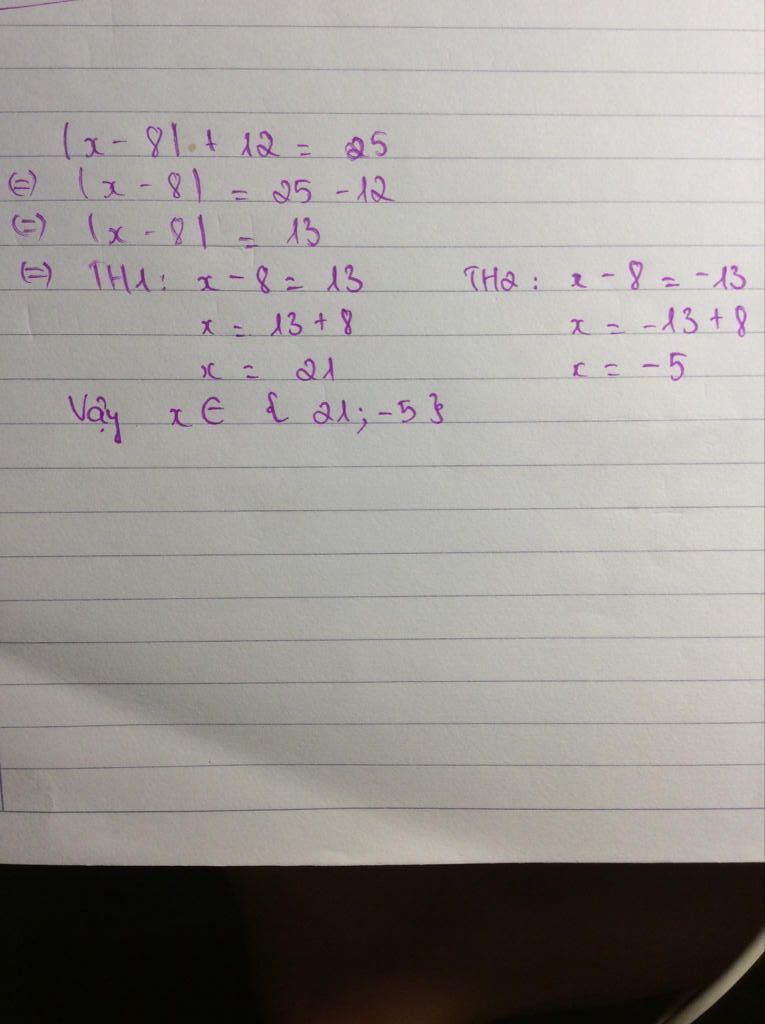 |x - 8| + 12 = 25
(=) |x - 8| = 25 - 12
(=) |x - 8| = 13
(=) TH1: x - 8 = 13 TH2: x - 8 = -13
x = 13 + 8 x = -13 + 8
x = 21 x = -5
Vậy x ∈ { 21; -5 }